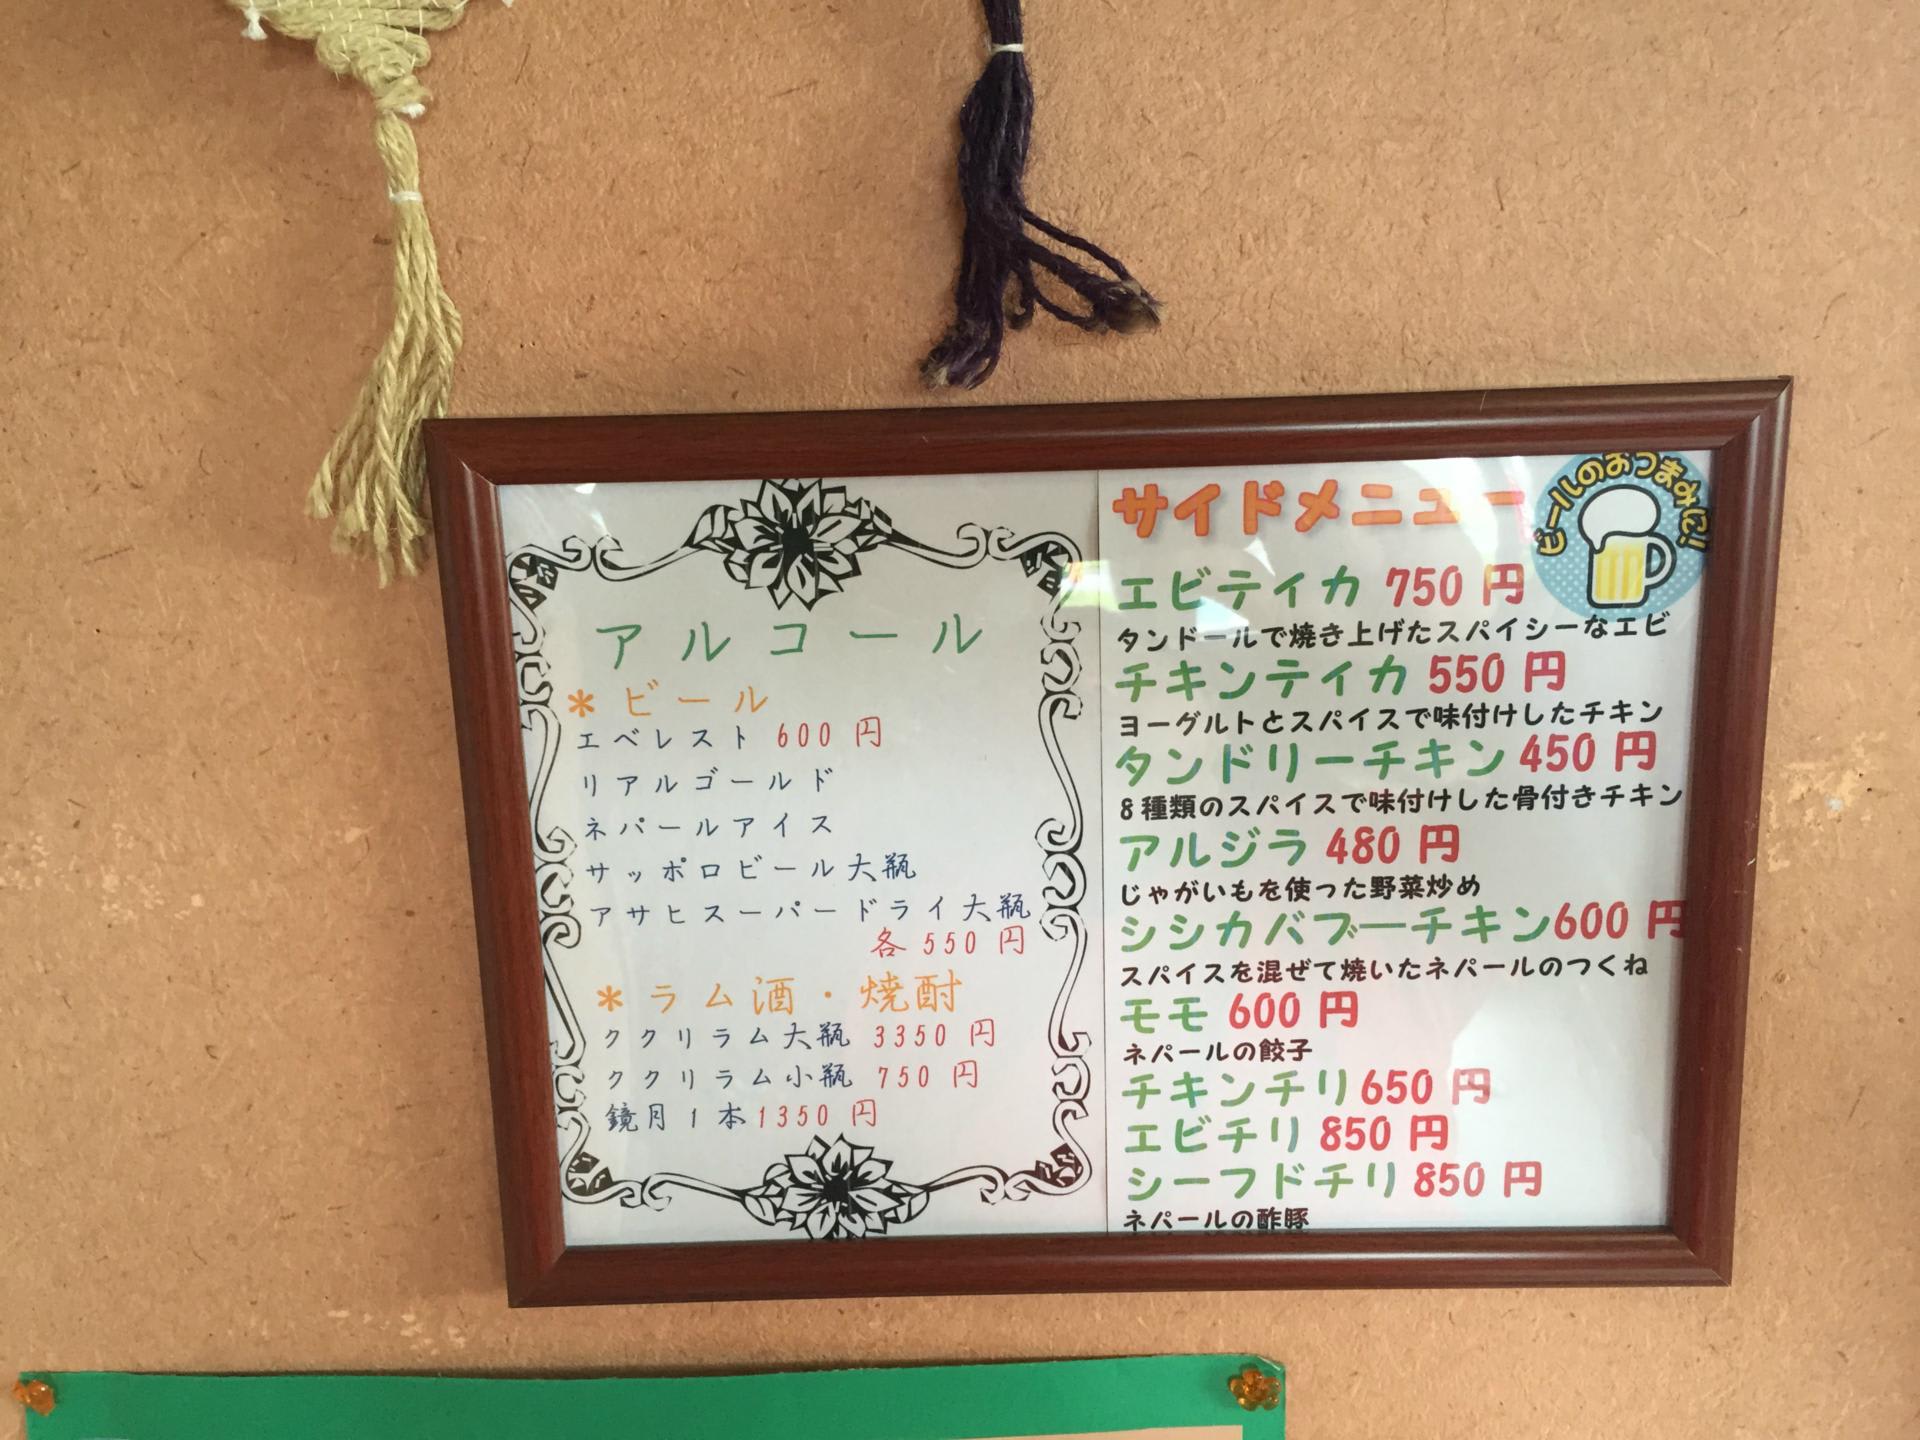 アルコール
* ビール
エベレスト 600 円
リアルゴールド
ネパールアイス
サッポロビール大瓶
アサヒスーパードライ大瓶
各 550 円
* ラム酒・焼酎
ククリラム大瓶 3350 円
ククリラム小瓶 750 円
鏡月1本1350 円
サイドメニュー
ビールのおつまみに!
エビティカ 750 円
タンドールで焼き上げたスパイシーなエビ
チキンティカ 550 円
ヨーグルトとスパイスで味付けしたチキン
タンドリーチキン 450 円
8種類のスパイスで味付けした骨付きチキン
アルジラ 480 円
じゃがいもを使った野菜炒め
シシカバブーチキン600 円
スパイスを混ぜて焼いたネパールのつくね
モモ 600 円
ネパールの餃子
チキンチリ650 円
エビチリ 850 円
シーフドチリ 850 円
ネパールの酢豚